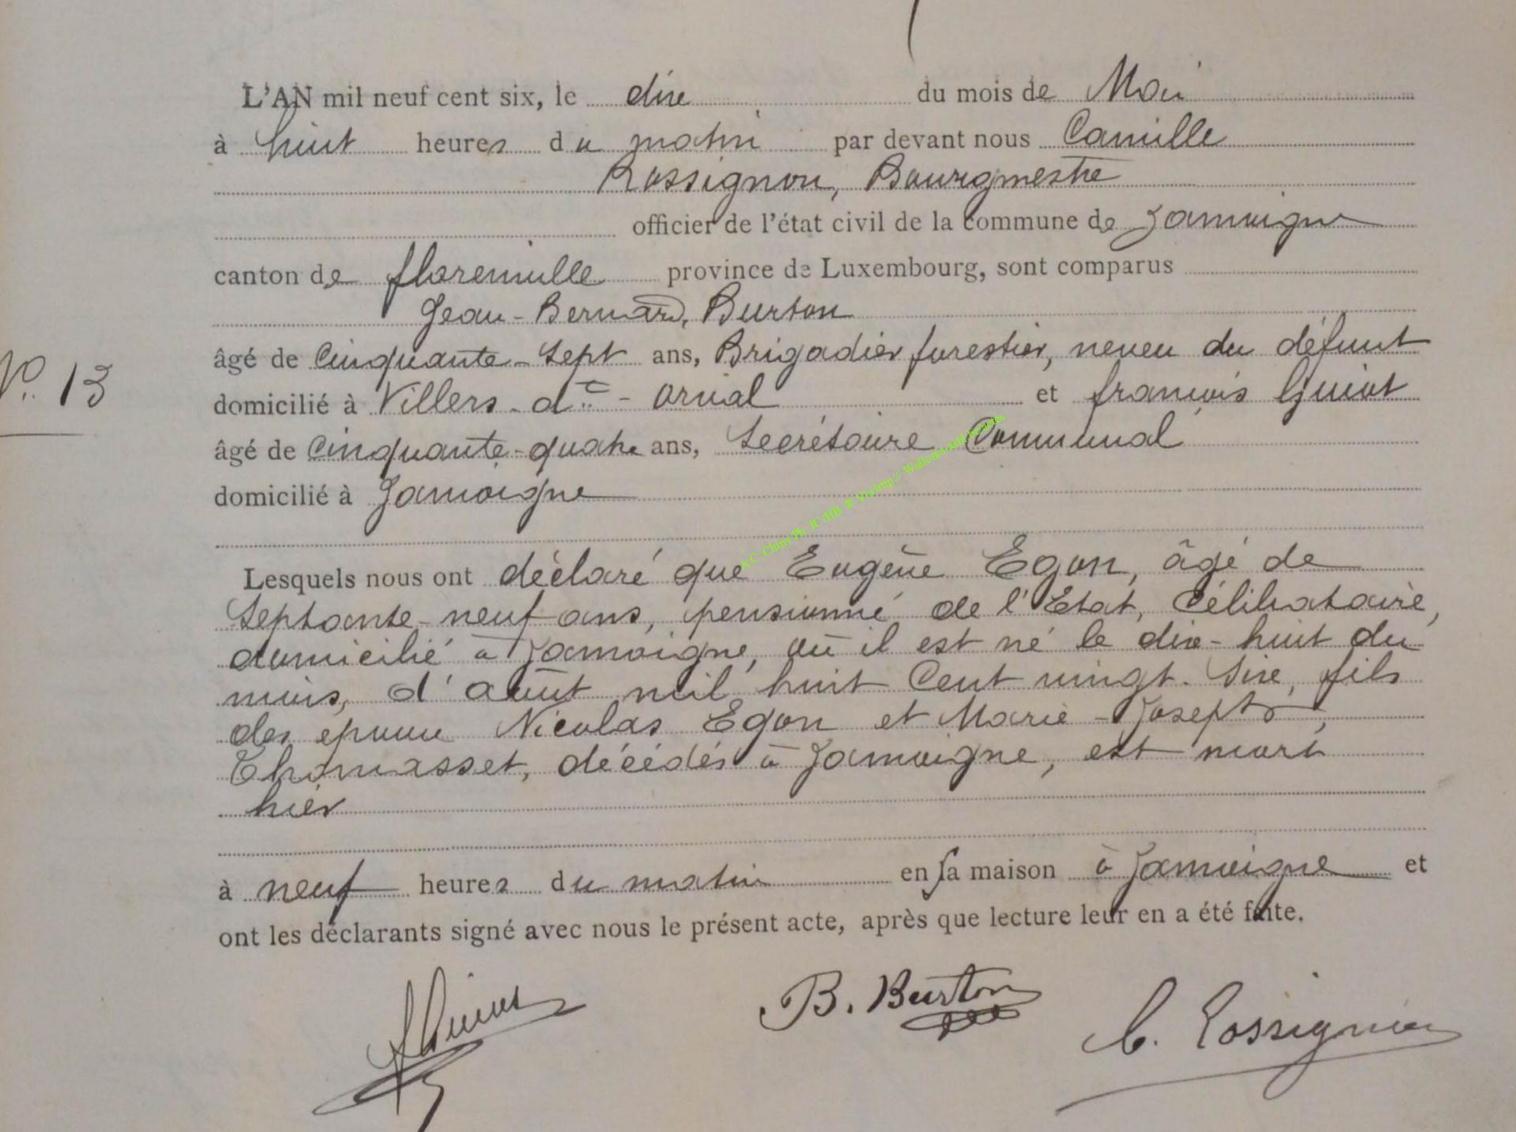 L'AN mil neuf cent six, le dixe du mois de Mai
à huit heures du matin par devant nous Camille
Rossignon, Bourgmestre
officier de l'état civil de la commune de Jamoigne
canton de florenville province de Luxembourg, sont comparus
Jean-Bernard, Burton
âgé de Cinquante-Sept ans, Brigadier forestier, neveu du défunt
N° 13
domicilié à Villers-dt-Orval et françois Guiot
âgé de Cinquante-quatre ans, Secrétaire Communal
domicilié à Jamoigne
Lesquels nous ont déclaré que Eugène Egon, âgé de
Septante-neuf ans, pensionné de l'Etat, Célibataire,
domicilié à Jamoigne, où il est né le dix-huit du
mois, d'août mil huit Cent vingt-Six, fils
des epoux Nicolas Egon et Marie-Joseph,
Thomasset, décédés à Jamoigne, est mort
hier
à neuf heures du matin en sa maison à Jamoigne et
ont les déclarants signé avec nous le présent acte, après que lecture leur en a été faite.
B. Burton
C. Rossignon